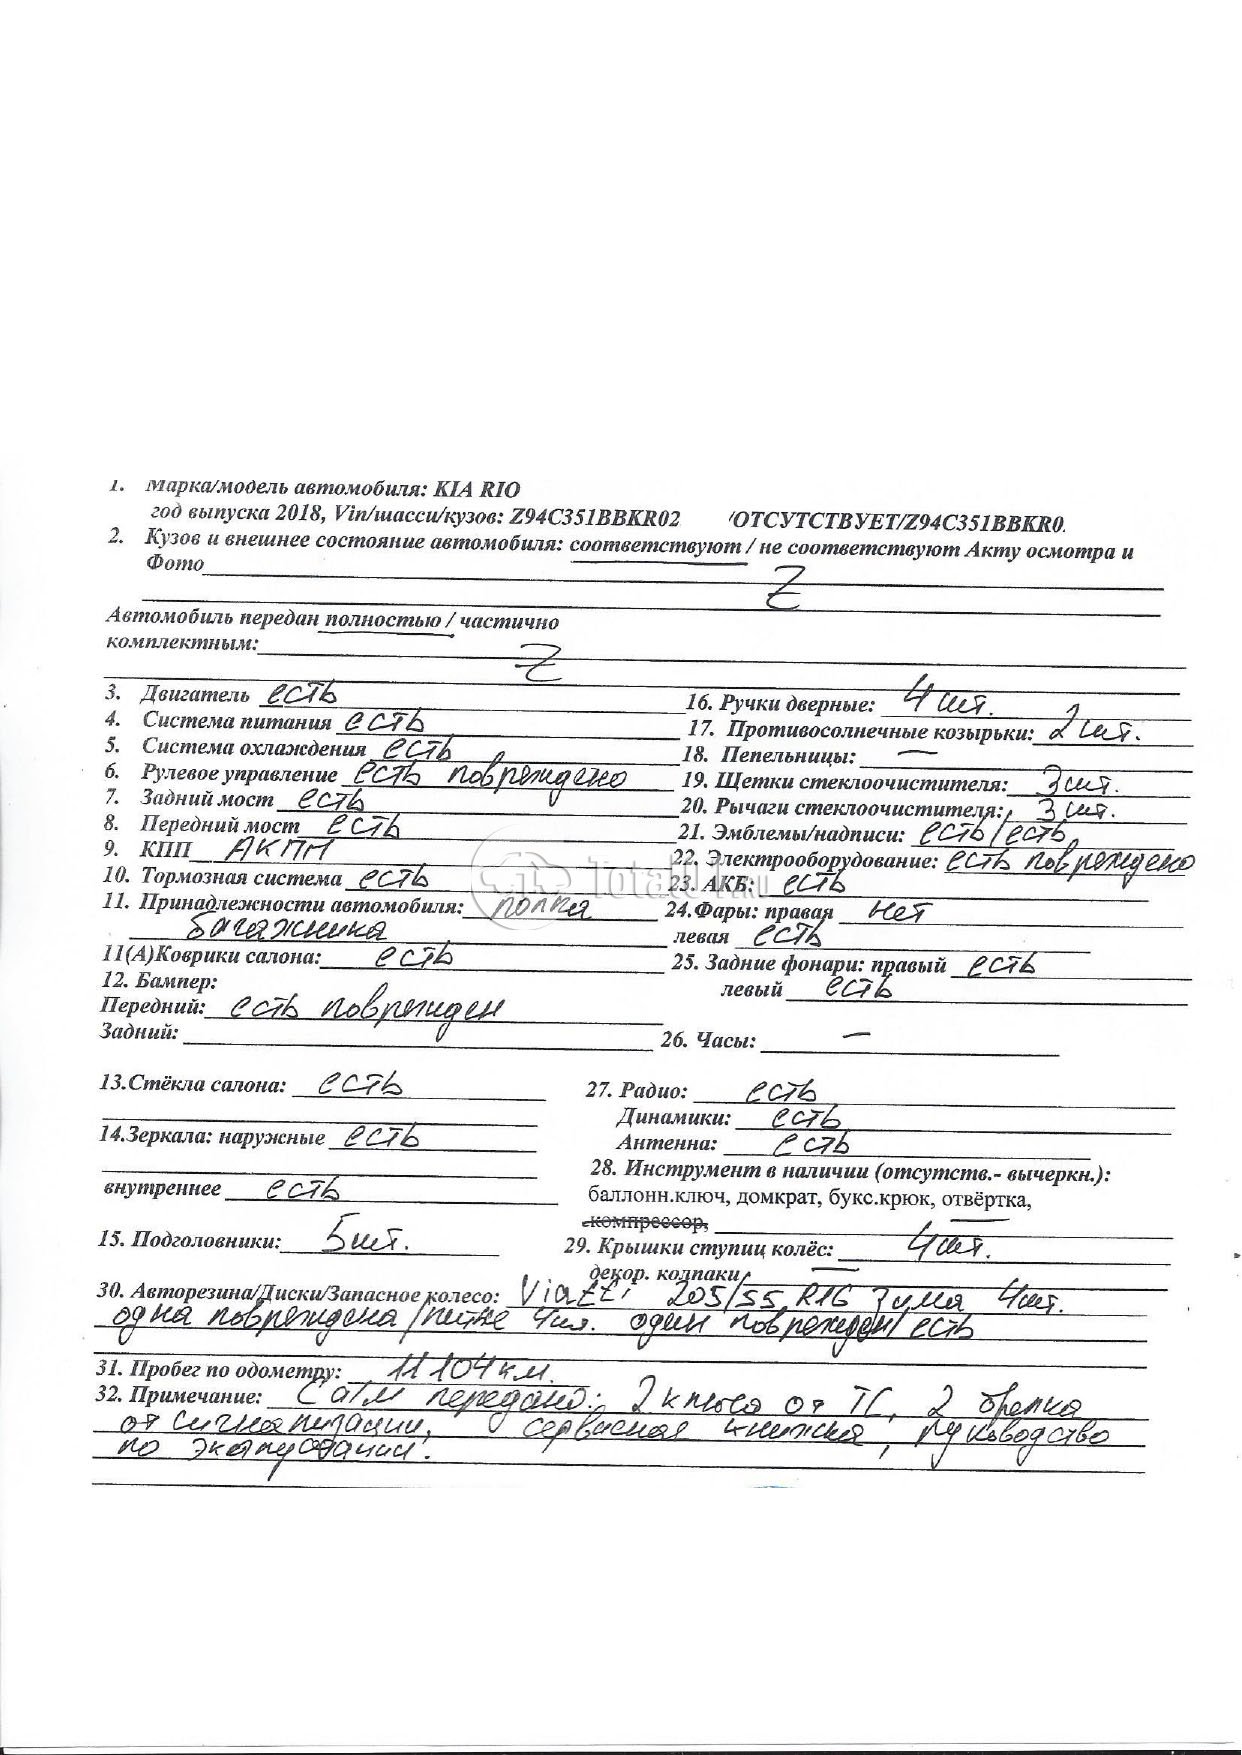 1. Марка/модель автомобиля: KIA RIO
год выпуска 2018, Vin/шасси/кузов: Z94C351BBKR02 /ОТСУТСТВУЕТ/Z94C351BBKR0.
2. Кузов и внешнее состояние автомобиля: соответствуют / не соответствуют Акту осмотра и
Фото
Z
Автомобиль передан полностью / частично
комплектным:
Z
3. Двигатель есть
4. Система питания есть
5. Система охлаждения есть
6. Рулевое управление есть повреждено
7. Задний мост есть
8. Передний мост есть
9. КПП АКПП
10. Тормозная система есть
11. Принадлежности автомобиля: полка
багажника
11(А)Коврики салона: есть
12. Бампер:
Передний: есть поврежден
Задний:
13.Стёкла салона: есть
14.Зеркала: наружные есть
внутреннее есть
15. Подголовники: 5 шт.
16. Ручки дверные: 4 шт.
17. Противосолнечные козырьки: 2 шт.
18. Пепельницы: —
19. Щетки стеклоочистителя: 3 шт.
20. Рычаги стеклоочистителя: 3 шт.
21. Эмблемы/надписи: есть/есть
22. Электрооборудование: есть повреждено
23. АКБ: есть
24.Фары: правая нет
левая есть
25. Задние фонари: правый есть
левый есть
26. Часы: —
27. Радио: есть
Динамики: есть
Антенна: есть
28. Инструмент в наличии (отсутств.- вычеркн.):
баллонн.ключ, домкрат, букс.крюк, отвёртка,
компрессор,
29. Крышки ступиц колёс: 4 шт.
декор. колпаки —
30. Авторезина/Диски/Запасное колесо: Viatti 205/55 R16 Зима 4шт.
одна повреждена /литые 4шт. один поврежден/ есть
31. Пробег по одометру: 11104 км.
32. Примечание: С а/м передано: 2 ключа от ТС, 2 брелка
от сигнализации, сервисная книжка, руководство
по эксплуатации.
Total01.RU